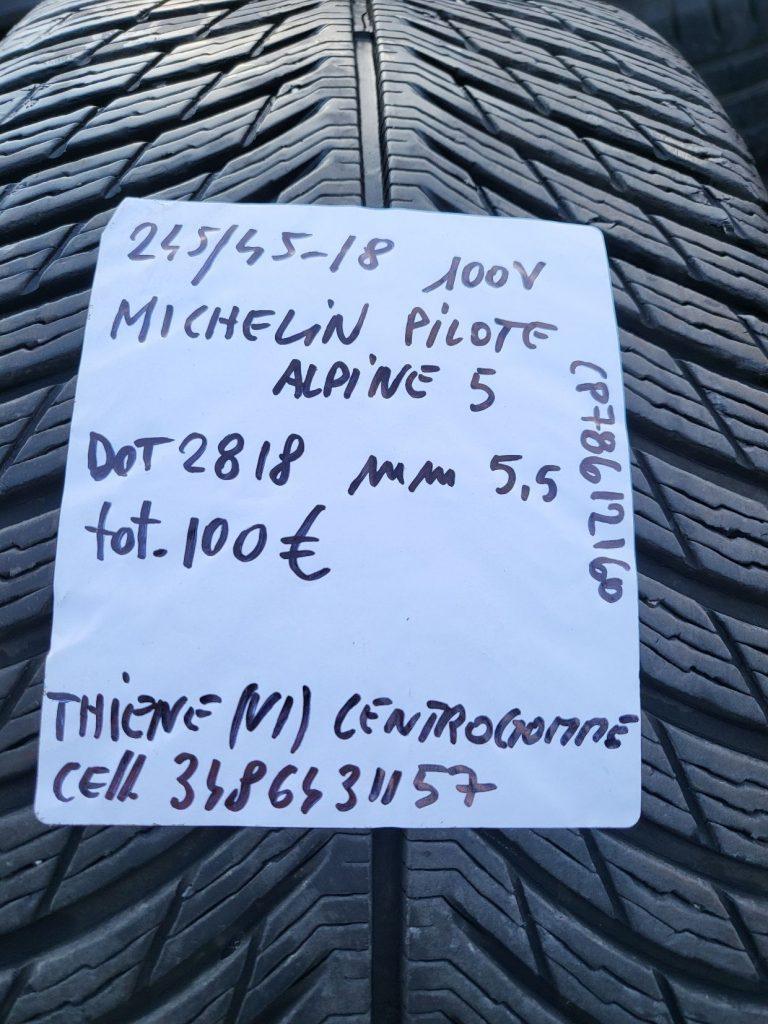 245/45-18 100V
MICHELIN PILOTE
ALPINE 5
DOT 2818 mm 5,5
tot. 100 €
THIENE (VI) CENTROGOMME
Cell. 3486431157
CP78612160